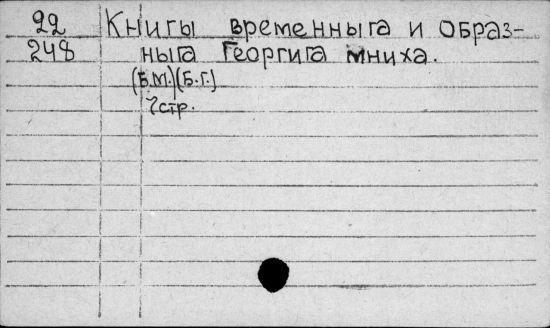 22 Книгы временныга и образ-
248 ныга Георгига мниха.
(Б.М.)(Б.Г.)
?стр.